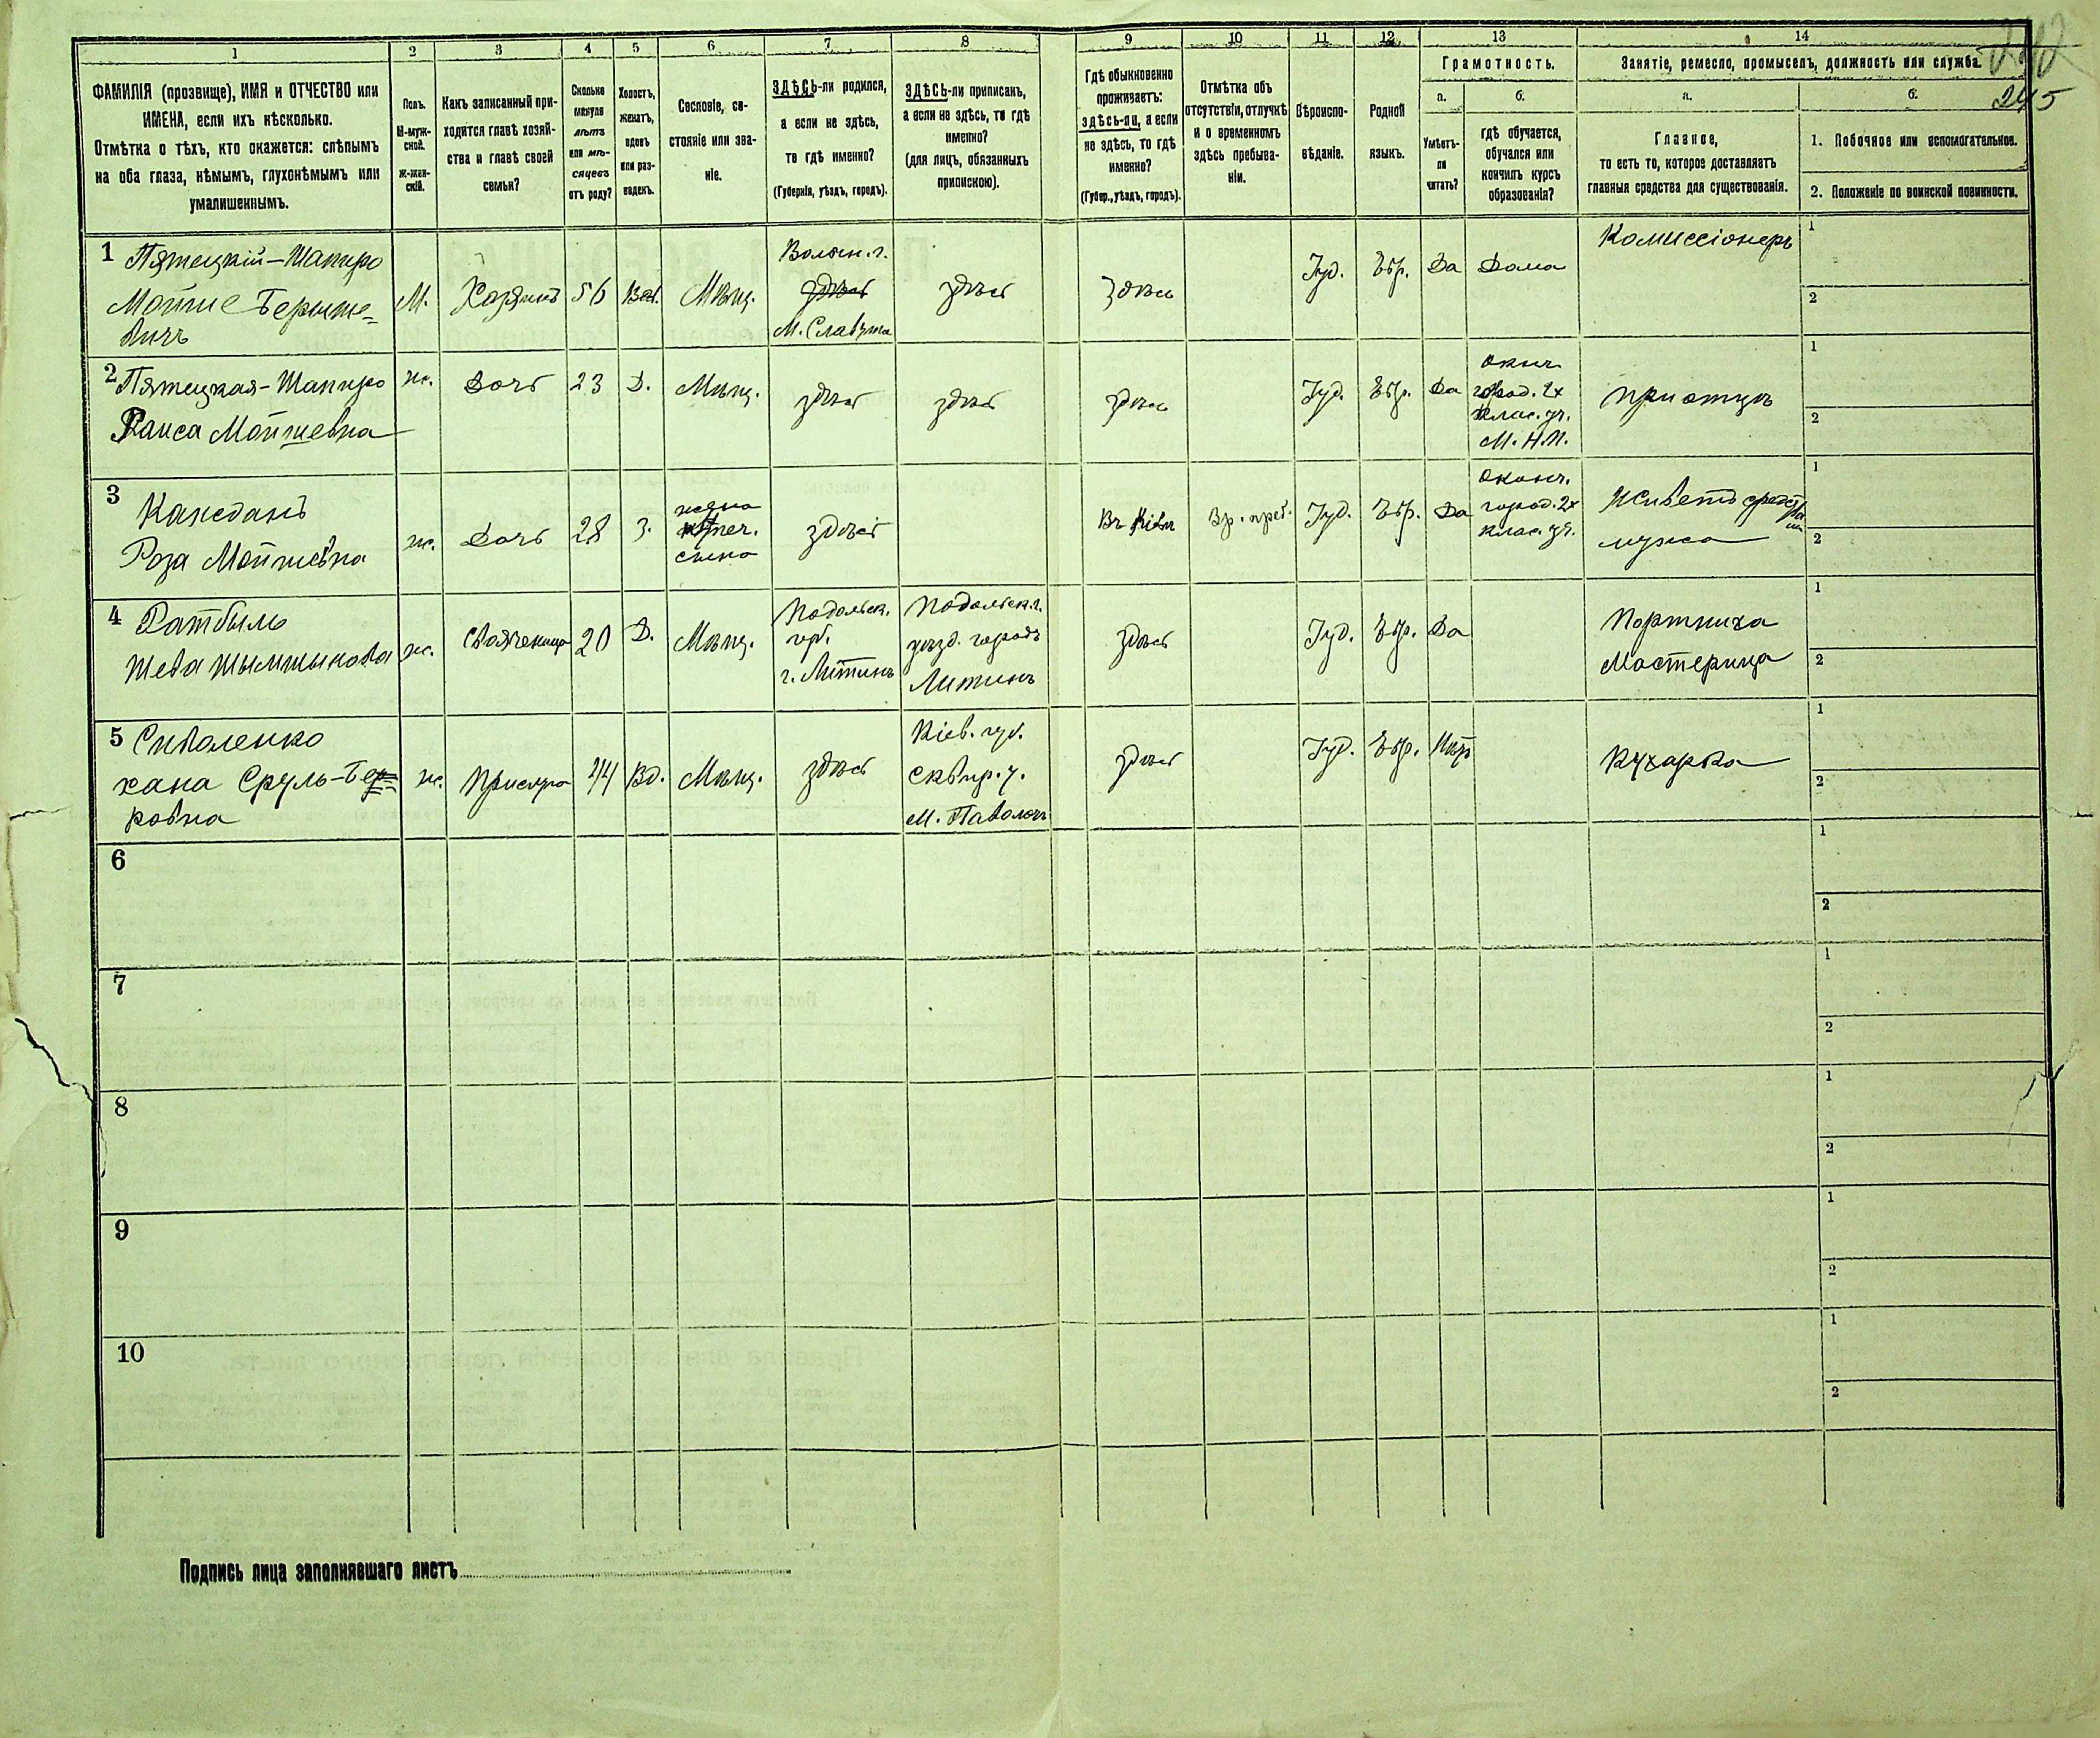 1 2 3 4 5 6 7 8 9 10 11 12 13 14
245
ФАМИЛІЯ (прозвище), ИМЯ и ОТЧЕСТВО или
ИМЕНА, если ихъ нѣсколько.
Отмѣтка о тѣхъ, кто окажется: слѣпымъ
на оба глаза, нѣмымъ, глухонѣмымъ или
умалишеннымъ.
Полъ.
М-муж-
ской.
Ж-жен-
скій.
Какъ записанный при-
ходится главѣ хозяй-
ства и главѣ своей
семьи?
Сколько
минуло
лѣтъ
или мѣ-
сяцевъ
отъ роду?
Холостъ,
женатъ,
вдовъ
или раз-
веденъ.
Сословіе, со-
стояніе или зва-
ніе.
ЗДѢСЬ-ли родился,
а если не здѣсь,
то гдѣ именно?
(Губернія, уѣздъ, городъ).
ЗДѢСЬ-ли приписанъ,
а если не здѣсь, то гдѣ
именно?
(для лицъ, обязанныхъ
припискою).
Гдѣ обыкновенно
проживаетъ:
здѣсь-ли, а если
не здѣсь, то гдѣ
именно?
(Губер., уѣздъ, городъ).
Отмѣтка объ
отсутствіи, отлучкѣ
и о временномъ
здѣсь пребыва-
ніи.
Вѣроиспо-
вѣданіе.
Родной
языкъ.
Грамотность.
а.
Умѣетъ-
ли
читать?
б.
гдѣ обучается,
обучался или
кончилъ курсъ
образованія?
Занятіе, ремесло, промыселъ, должность или служба.
а.
Главное,
то есть то, которое доставляетъ
главныя средства для существованія.
б.
1. Побочное или вспомогательное.
2. Положеніе по воинской повинности.
1 Пятецкій-Шапиро
Мойше Берише-
вичъ
М.
Хозяинъ
56
Вд.
Мѣщ.
Волын. г.
здѣсь
М. Славута
здѣсь
здѣсь
Іуд.
Евр.
Да
Дома
Комиссіонеръ
1
2
2 Пятецкая-Шапиро
Раиса Мойшевна
ж.
Дочь
23
Д.
Мѣщ.
здѣсь
здѣсь
здѣсь
Іуд.
Евр.
Да
Оконч.
город. 2х
клас. уч.
М. Н. П.
при отцѣ
1
2
3 Каждань
Роза Мойшевна
ж.
Дочь
28
З.
жена
купеч.
сына
здѣсь
Въ Кіевѣ
Вр. преб.
Іуд.
Евр.
Да
Оконч.
город. 2х
клас. уч.
Живетъ средствами
мужа
1
2
4 Ратбиль
Шева Шымшыкова
ж.
Свояченица
20
Д.
Мѣщ.
Подольск.
губ.
г. Литинъ
Подольск. г.
уѣзд. городъ
Литинъ
здѣсь
Іуд.
Евр.
Да
Портниха
Мастерица
1
2
5 Сиволенко
Хана Сруль-Бер
ковна
ж.
Прислуга
44
Вд.
Мѣщ.
здѣсь
Кіев. губ.
Сквир. у.
М. Паволочь
здѣсь
Іуд.
Евр.
Нѣтъ
Кухарка
1
2
6
1
2
7
1
2
8
1
2
9
1
2
10
1
2
Подпись лица заполнявшаго листъ